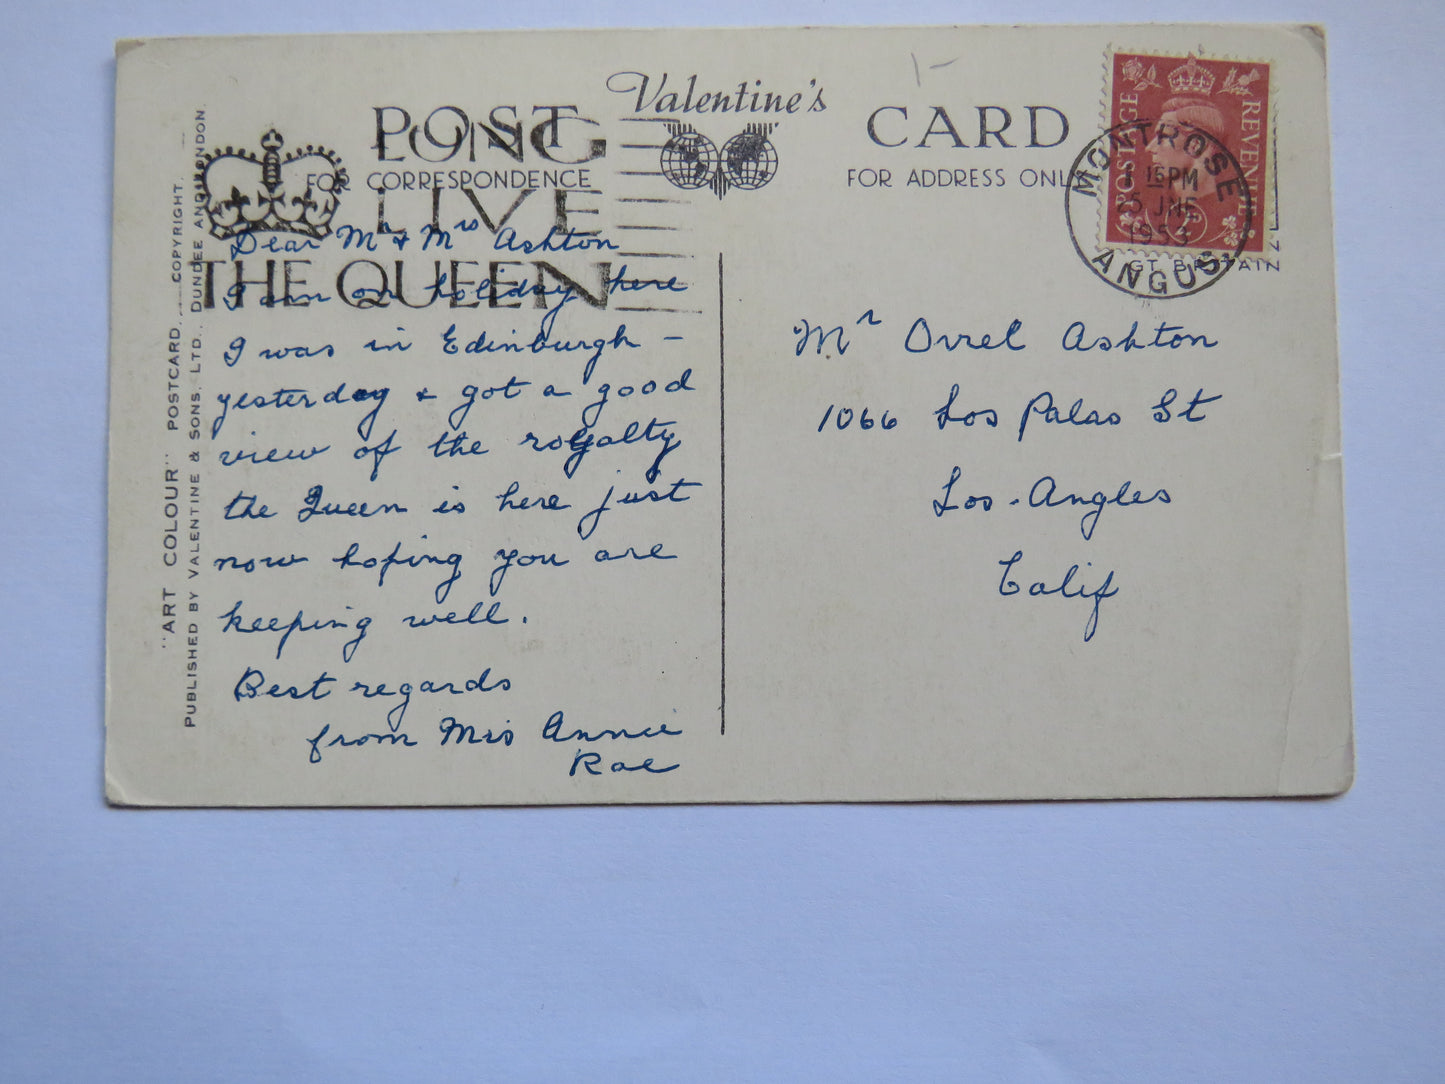 POST
Valentine's
CARD
FOR CORRESPONDENCE
FOR ADDRESS ONL
LONG
LIVE
THE QUEEN
POSTAGE
REVENUE
MONTROSE
1 15 PM
25 JNE
1953
ANGUS
GT. BRITAIN
"ART COLOUR" POSTCARD. COPYRIGHT.
PUBLISHED BY VALENTINE & SONS, LTD., DUNDEE AND LONDON.
Dear Mr & Mrs Ashton
I am on holiday here
I was in Edinburgh –
yesterday & got a good
view of the royalty
the Queen is here just
now hoping you are
keeping well.
Best regards
from Mrs Annie
Rae
Mr Orrel Ashton
1066 Los Palas St
Los-Angles
Calif